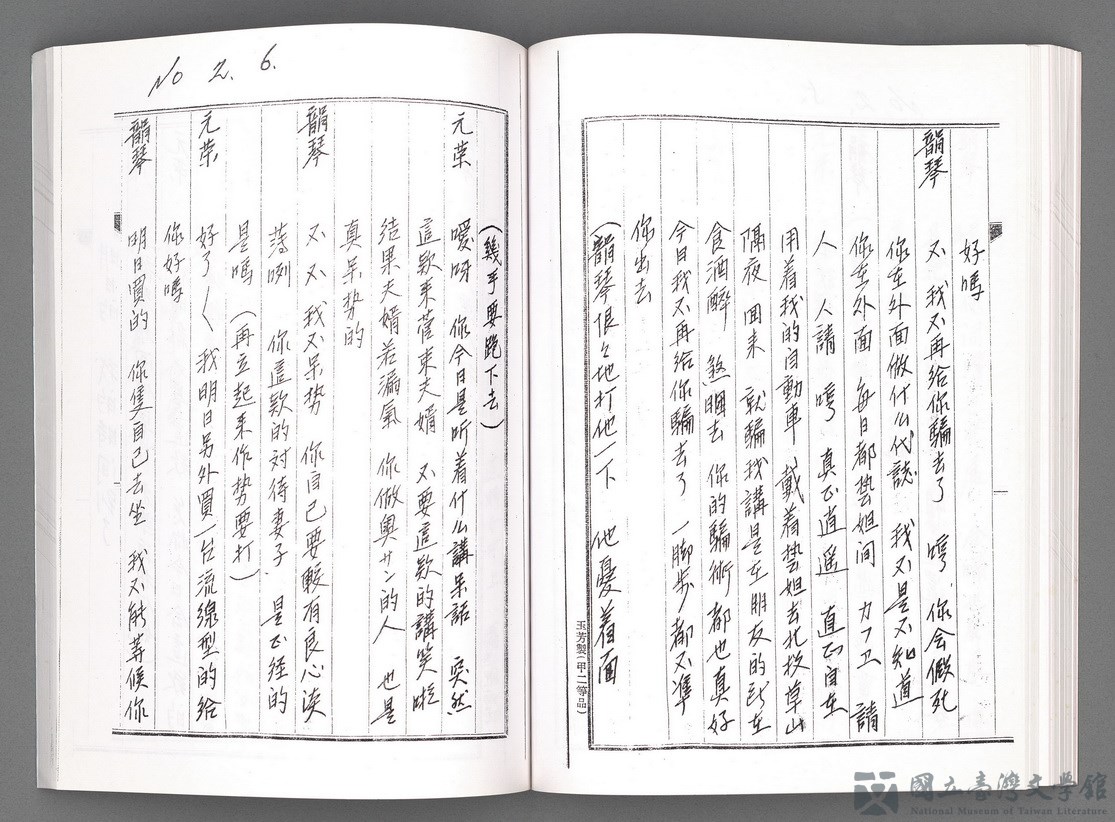 好嗎
韻琴　不　我不再給你騙去了　哼．你会假死
你在外面做什么代誌　我不是不知道
你在外面　每日都藝姐间　カフエ　請
人　人請　哼　真正逍遥　真正自在
用着我的自動車　戴着藝妲去北投草山
隔夜　回来　就騙我講是在朋友的
食酒醉　煞睏去　你的騙術都也真好
今日我不再给你騙去了　一脚步都不準
你出去
（韻琴恨々地打他一下　他憂着面
玉芳製(甲・二等品)
No 2. 6.
（幾乎要跪下去）
元荣　噯呀　你今日是听着什么講呆話　突然
這款来管束夫婿　不要這款的講笑啦
结果夫婿若漏氣　你做奥サン的人　也是
真呆势的
韻琴　不　不　我不呆势　你自己要較有良心淡
薄咧　你這款的对待妻子．是正径的
是嗎　（再立起来作势要打）
元荣　好了〱　我明日另外買一台流線型的给
你好嗎
韻琴　明日買的　你隻自己去坐　我不能等候你
國立臺灣文學館
National Museum of Taiwan Literature